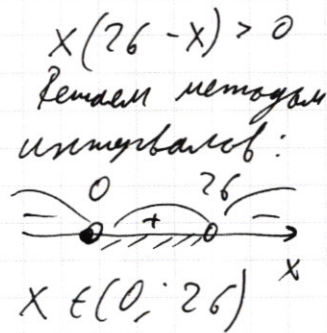 x(26 - x) > 0
Решаем методом
интервалов:
0 26
− + −
x
x ∈ (0; 26)